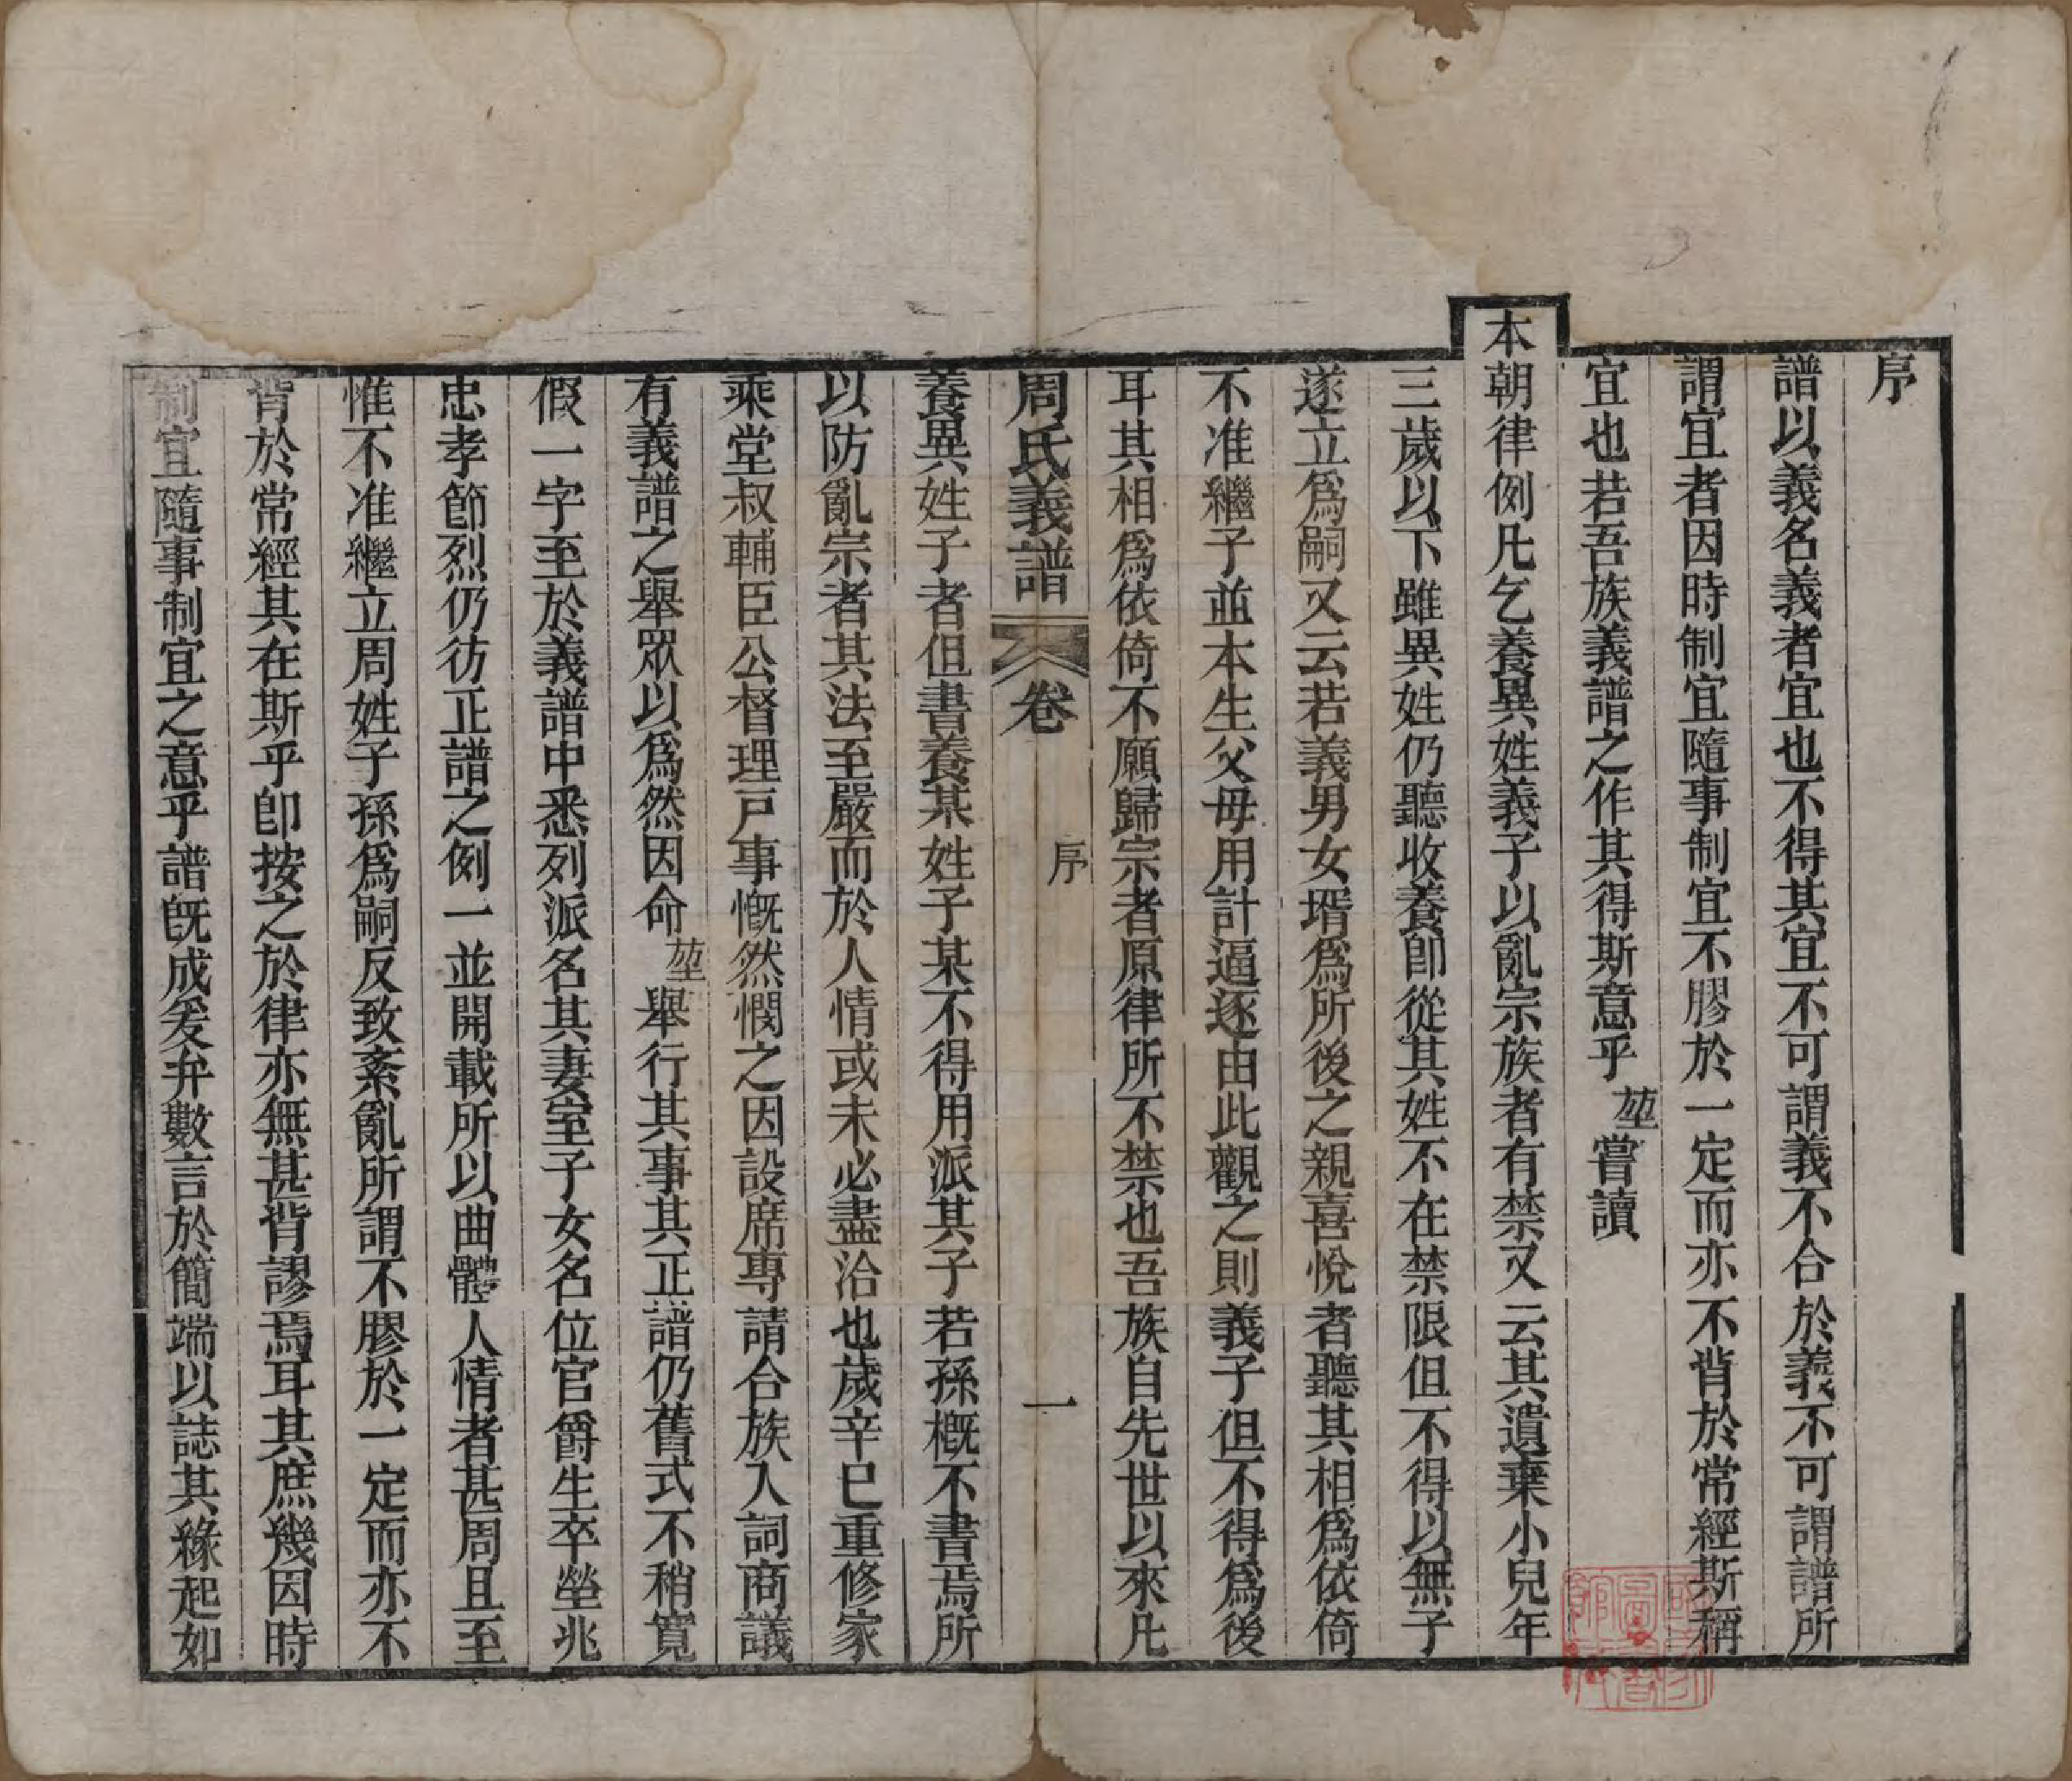 序
譜以義名義者宜也不得其宜不可謂義不合於義不可謂譜所
謂宜者因時制宜隨事制宜不膠於一定而亦不背於常經斯稱
宜也若吾族義譜之作其得斯意乎堃嘗讀
本朝律例凡乞養異姓義子以亂宗族者有禁又云其遺棄小兒年
三歲以下雖異姓仍聽收養卽從其姓不在禁限但不得以無子
遂立爲嗣又云若義男女壻爲所後之親喜悅者聽其相爲依倚
不准繼子並本生父母用計逼逐由此觀之則義子但不得爲後
耳其相爲依倚不願歸宗者原律所不禁也吾族自先世以來凡
周氏義譜 卷 序 一
養異姓子者但書養某姓子某不得用派其子若孫槪不書焉所
以防亂宗者其法至嚴而於人情或未必盡洽也歲辛巳重修家
乘堂叔輔臣公督理戸事慨然憫之因設席專請合族入詞商議
有義譜之舉眾以爲然因命堃舉行其事其正譜仍舊式不稍寬
假一字至於義譜中悉列派名其妻室子女名位官爵生卒塋兆
忠孝節烈仍彷正譜之例一並開載所以曲體人情者甚周且至
惟不准繼立周姓子孫爲嗣反致紊亂所謂不膠於一定而亦不
背於常經其在斯乎卽按之於律亦無甚背謬焉耳其庶幾因時
制宜隨事制宜之意乎譜旣成爰弁數言於簡端以誌其緣起如